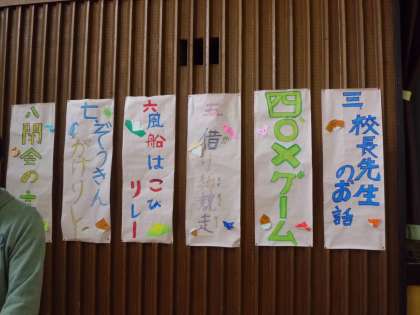 三 校長先生
のお話
四 〇×ゲーム
五 借り物競走
六 風船はこび
リレー
七 ぞうきん
がけリレー
八 閉会の